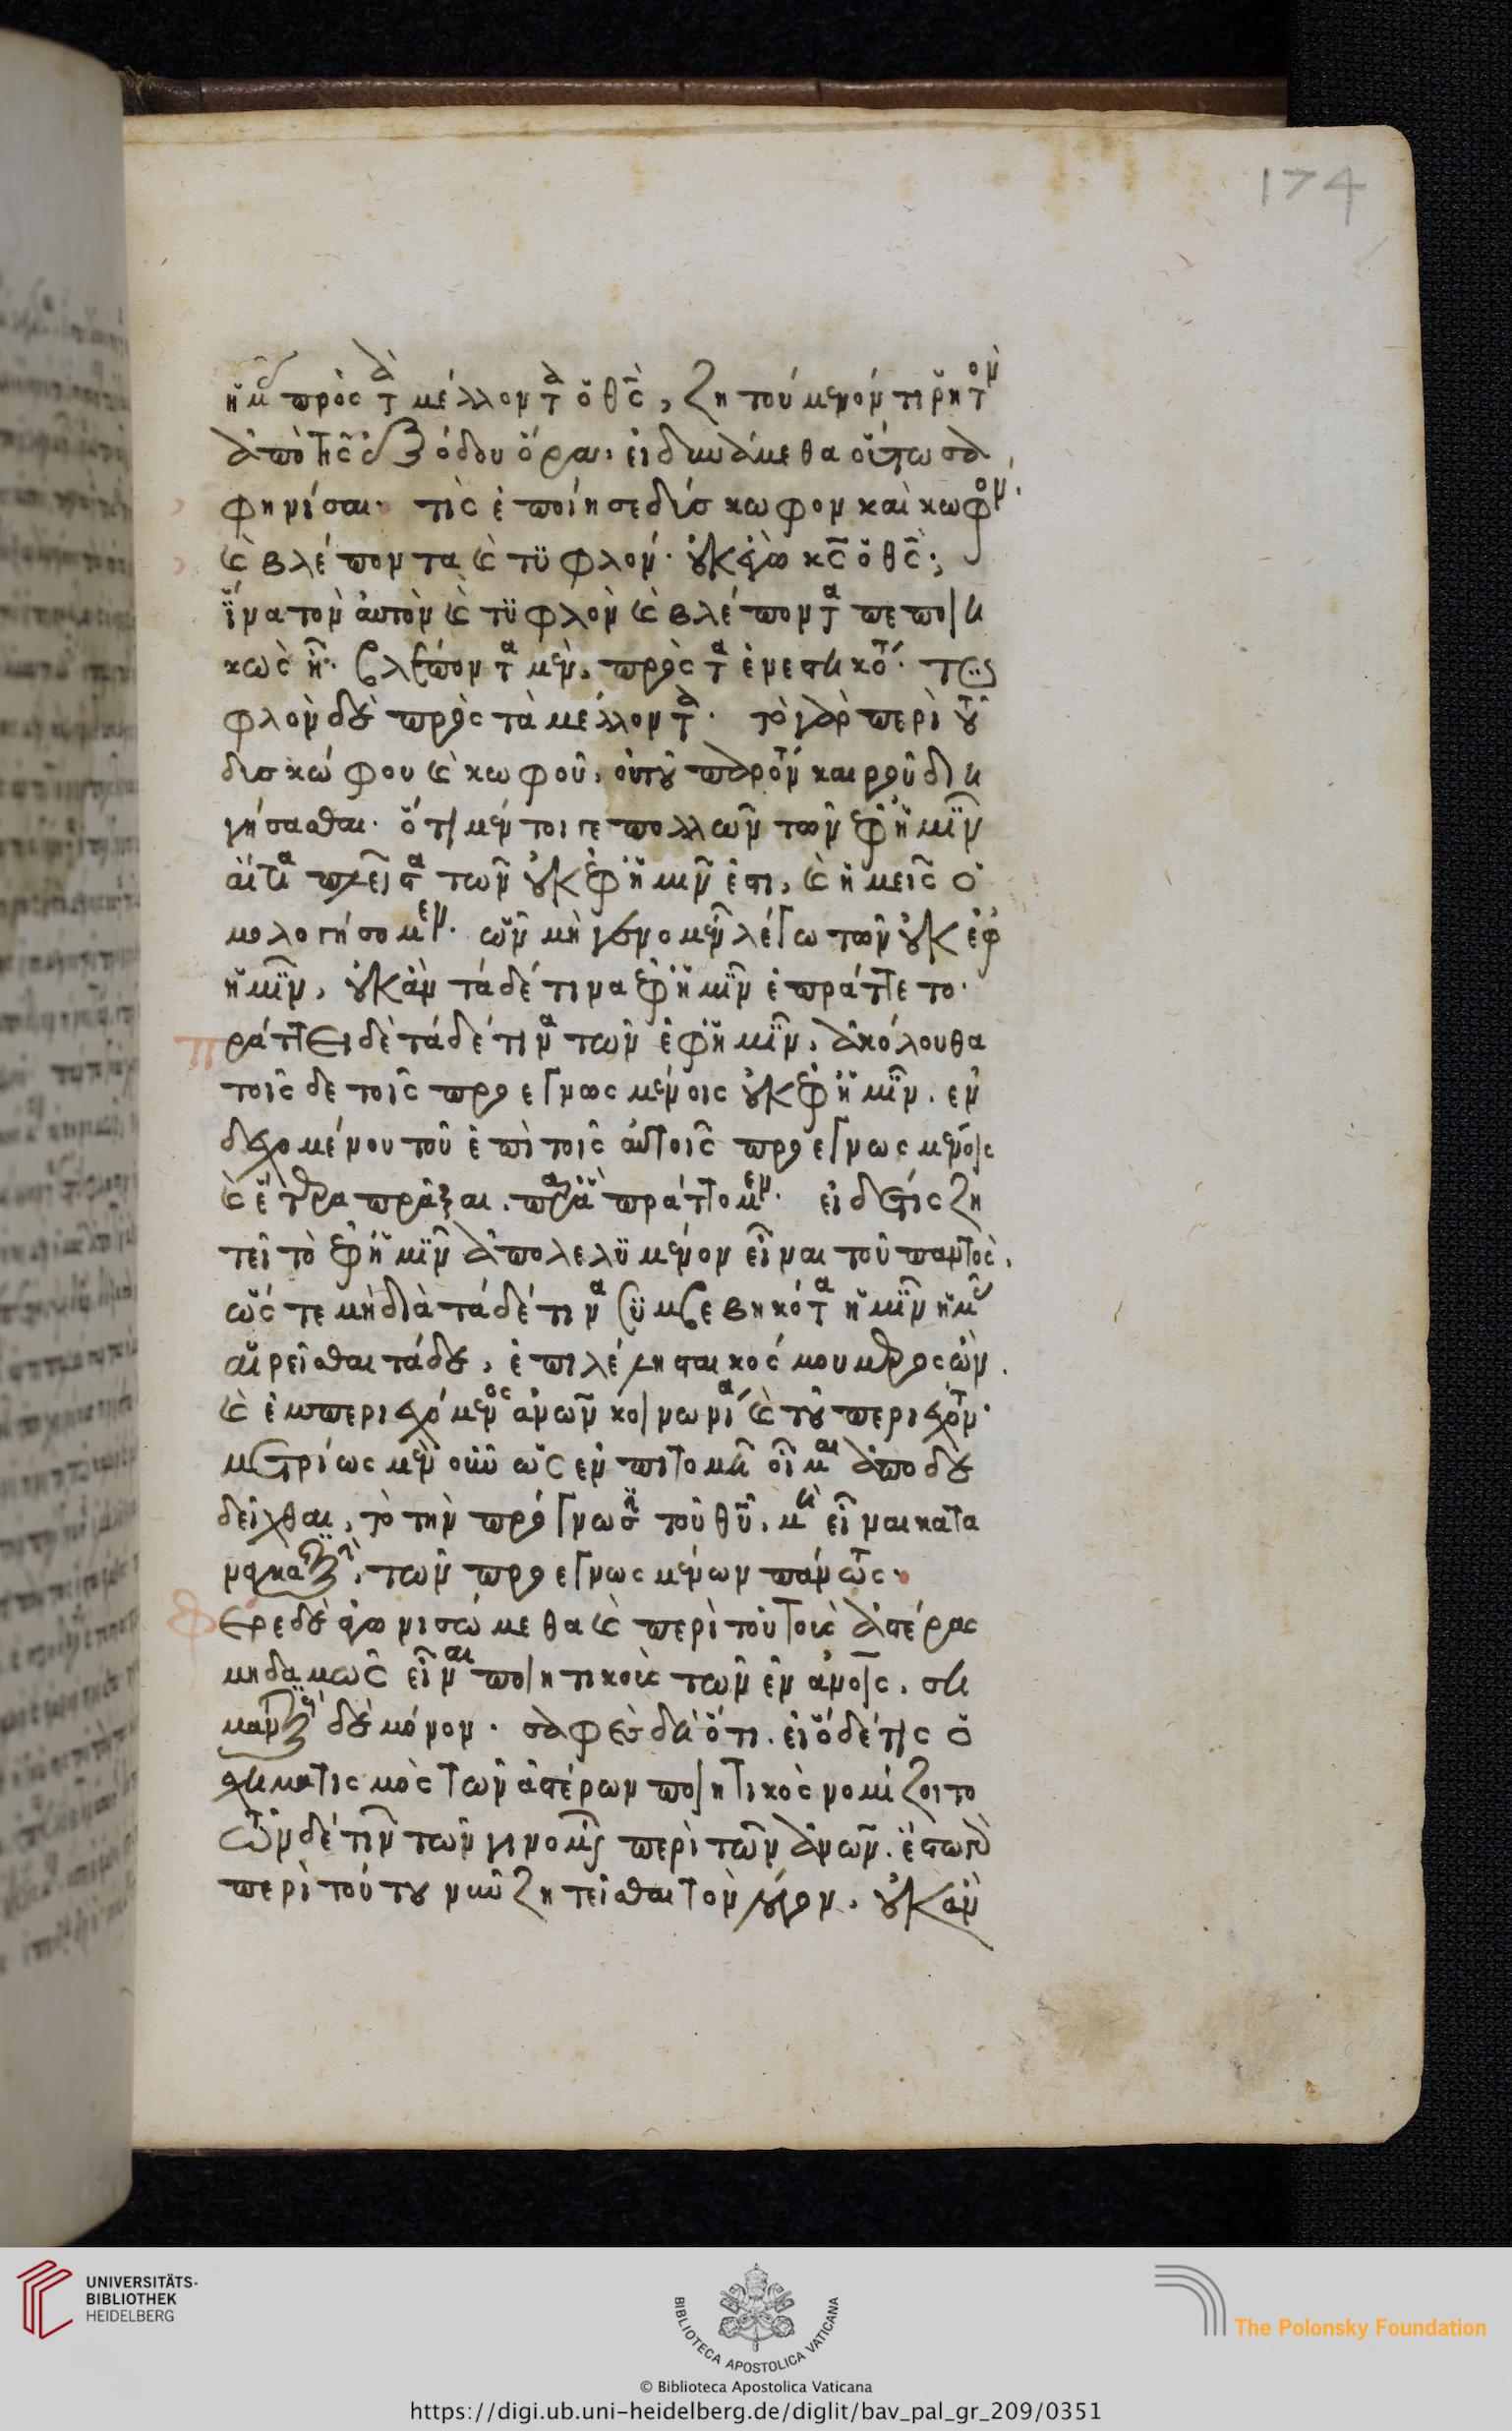 ἡμᾶς πρὸς τὰ μέλλοντα ὁ θς̄, ζητούμενόν τι ῥητὸν
ἀπὸ τῆς ἐξόδου ὅρα, εἰ δυνάμεθα οὕτω σα
φηνίσαι· τίς ἐποίησε δύσκωφον καὶ κωφόν·
καὶ βλέποντα καὶ τυφλόν· οὐκ ἐγὼ κς̄ ὁ θς̄;
ἵνα τὸν αὐτὸν καὶ τυφλὸν καὶ βλέποντα πεποιη
κὼς ᾖ· βλέποντα μὲν, πρὸς τὰ ἐνεστηκότα· τυ
φλὸν δὲ πρὸς τὰ μέλλοντα· τὸ γὰρ περὶ τοῦ
δυσκώφου καὶ κωφοῦ, οὐ τοῦ παρόντος καιροῦ διη
γήσασθαι· ὅτι μέντοι γε πολλῶν τῶν ἐφ' ἡμῖν
αἴτια πλεῖστα τῶν οὐκ ἐφ' ἡμῖν ἐστι, καὶ ἡμεῖς ὁ
μολογήσομεν· ὧν μὴ γενομένων λέγω τῶν οὐκ ἐφ'
ἡμῖν, οὐκ ἂν τάδέ τινα ἐφ' ἡμῖν ἐπράττετο·
πράττει δὲ τάδέ τινα τῶν ἐφ' ἡμῖν, ἀκόλουθα
τοῖς δε τοῖς προεγνωσμένοις οὐκ ἐφ' ἡμῖν. ἐν
δεχομένου τοῦ ἐπὶ τοῖς αὐτοῖς προεγνωσμένοις
καὶ ἕτερα πρᾶξαι. παρ' ἃ πράττομεν· εἰ δέ τις ζη
τεῖ τὸ ἐφ' ἡμῖν ἀπολελυμένον εἶναι τοῦ παντὸς,
ὥς τε μὴ διὰ τάδέ τινα συμβεβηκότα ἡμῖν ἡμᾶς
αἱρεῖσθαι τάδε, ἐπιλέλησται κόσμου μέρος ὢν.
καὶ ἐμπεριεχόμενος ἀνων̄ κοινωνία καὶ τοῦ περιέχοντος·
μετρίως μὲν οὖν ὡς ἐν ἐπιτομῇ οἶμαι ἀποδε
δεῖχθαι, τὸ τὴν πρόγνωσιν τοῦ θῡ, μὴ εἶναι κατα
ναγκαστικὴν, τῶν προεγνωσμένων πάντως·
φέρε δὲ ἀγωνισώμεθα καὶ περὶ τοῦ τοὺς ἀστέρας
μηδαμῶς εἶναι ποιητικοὺς τῶν ἐν ἀνοις̄, ση
μαντικοὺς δὲ μόνον· σαφὲς δὴ ὅτι. εἰ ὅδέ τις ὁ
σχηματισμὸς τῶν ἀστέρων ποιητικὸς νομίζοιτο
τῶνδέ τινων τῶν γινομένων περὶ τῶν ἀνων̄. ἔστω γὰρ
περὶ τούτου νῦν ζητεῖσθαι τὸν λόγον, οὐκ ἂν
174
UNIVERSITÄTS-
BIBLIOTHEK
HEIDELBERG
BIBLIOTECA APOSTOLICA VATICANA
The Polonsky Foundation
© Biblioteca Apostolica Vaticana
https://digi.ub.uni-heidelberg.de/diglit/bav_pal_gr_209/0351